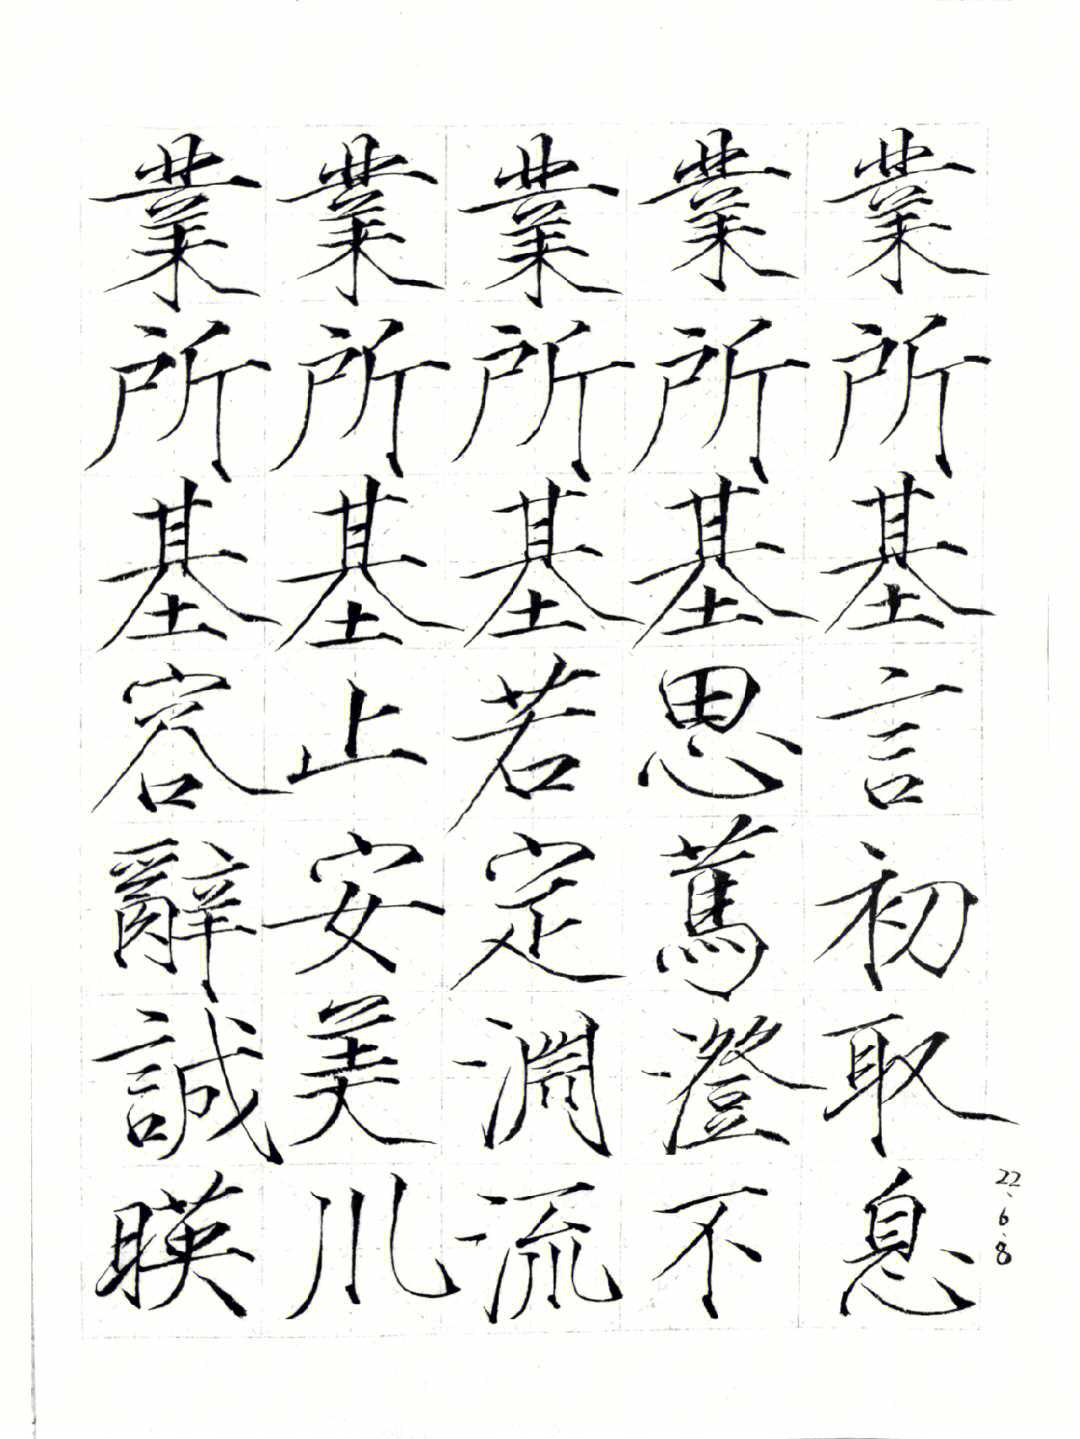 業業業業業
所所所所所
基基基基基
容止若思言
辭安定篤初
誠美淵澄取
暎川流不息
22.6.8